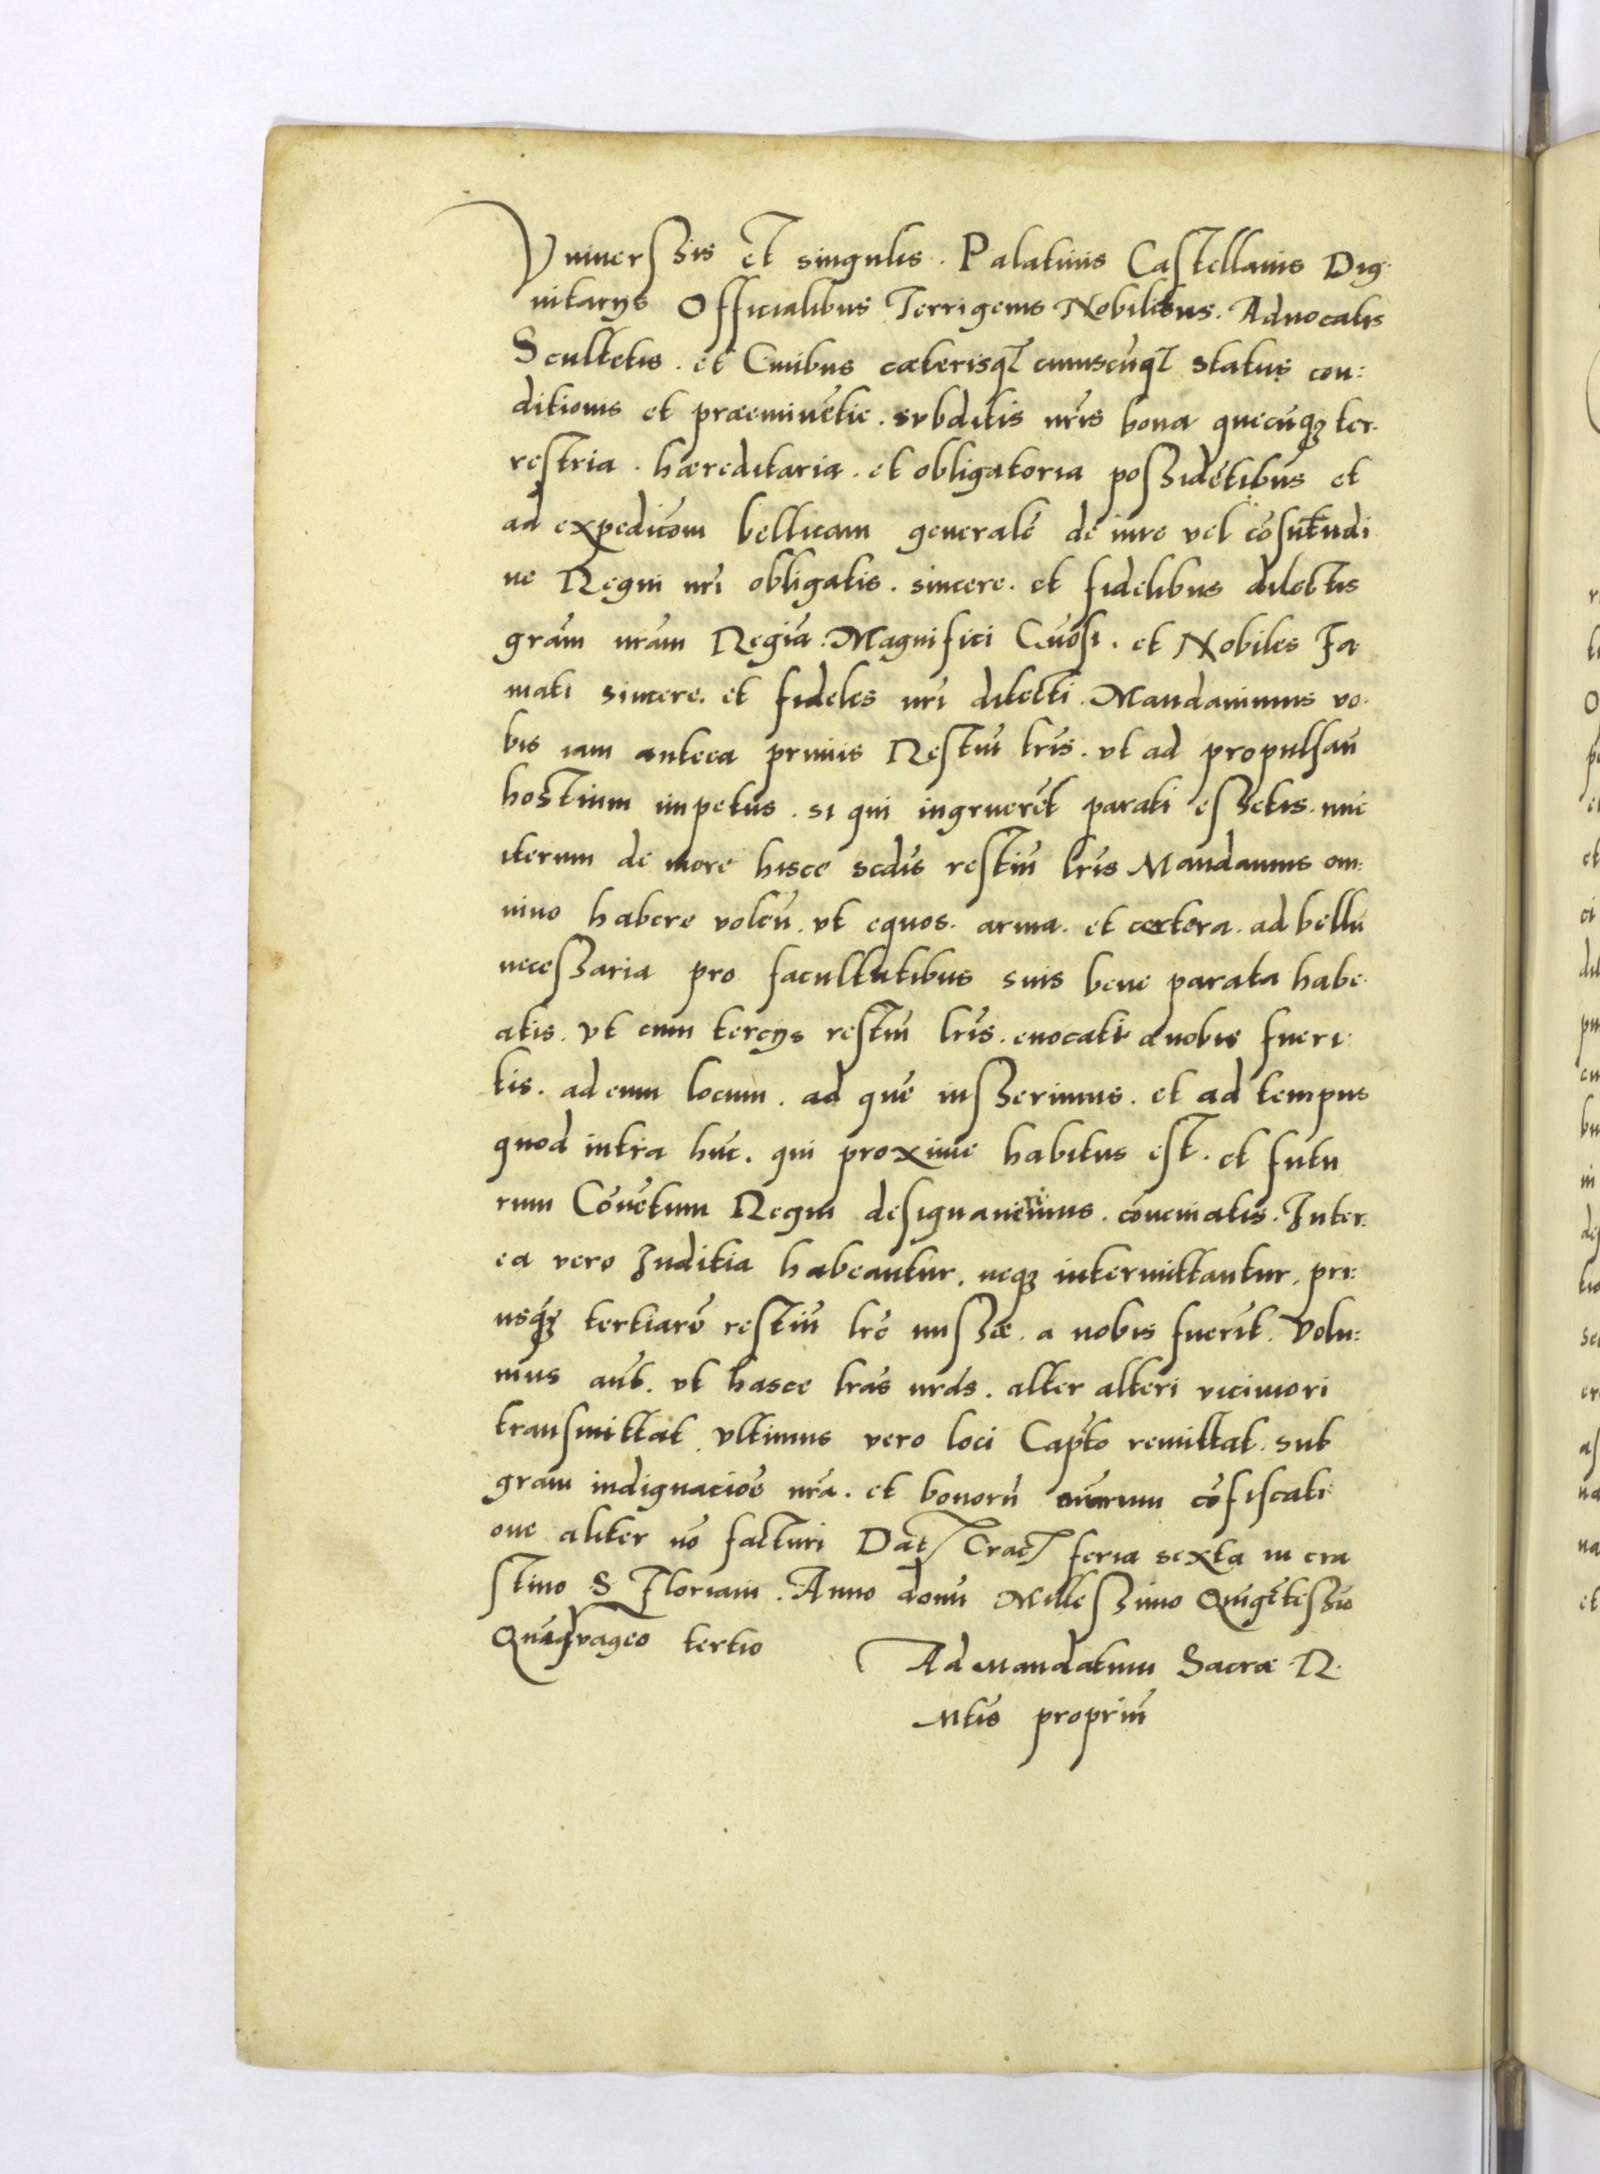 Vniuerszis et singulis. Palatinis Castellanis Dig-
nitarijs Officialibus Terrigenis Nobilibus. Aduocatis
Scultetis. et Ciuibus cæterisq cuiuscūq status con:
ditionis et præeminētie. svbditis nr̄is bona quecūqȝ ter-
restria. hæreditaria. et obligatoria poszidētibus et
ad expedicōm bellicam generalē de iure vel cōsutudi
ne Regni nr̄i obligatis. sincere. et fidelibus dilectis
grām nr̄am Regiā. Magnifici Gn̄osi. et Nobiles Fa
mati sincere. et fideles nr̄i dilecti. Mandauimus vo-
bis iam antea primis Restiū lr̄is. vt ad propulsan̄
hostium impetus. si qui ingruerēt parati eszetis. nūc
iterum de more hisce sc̄dis restiū lr̄is Mandamus om:
nino habere volen̄. vt equos. arma. et cætera. ad bellū
neceszaria pro facultatibus suis bene parata habe-
atis. vt cum tercijs restiū lr̄is. euocati a nobis fueri-
tis. ad eum locum. ad quē iuszerimus. et ad tempus
quod intra hūc. qui proxime habitus est. et futu
rum Cōuētum Regni designauerimus. cōueniatis. Inter-
ea vero Iuditia habeantur. neqȝ intermittantur. pri:
usqȝ tertiarē restiū lr̄e miszæ. a nobis fuerīt. Volu:
mus aūt. vt hasce lr̄as nr̄as. alter alteri viciniori
transmittat. vltimus vero loci Capt̄o remittat. sub
graui indignaciōe nr̄a. et bonorū suarum cōfiscati
one aliter nō facturi Dat Crac feria sexta in cra
stino S Floriani. Anno domī Milleszimo Quīgēteszīo
Quadrageō tertio
Ad Mandatum Sacræ R.
Mt̄is propriū